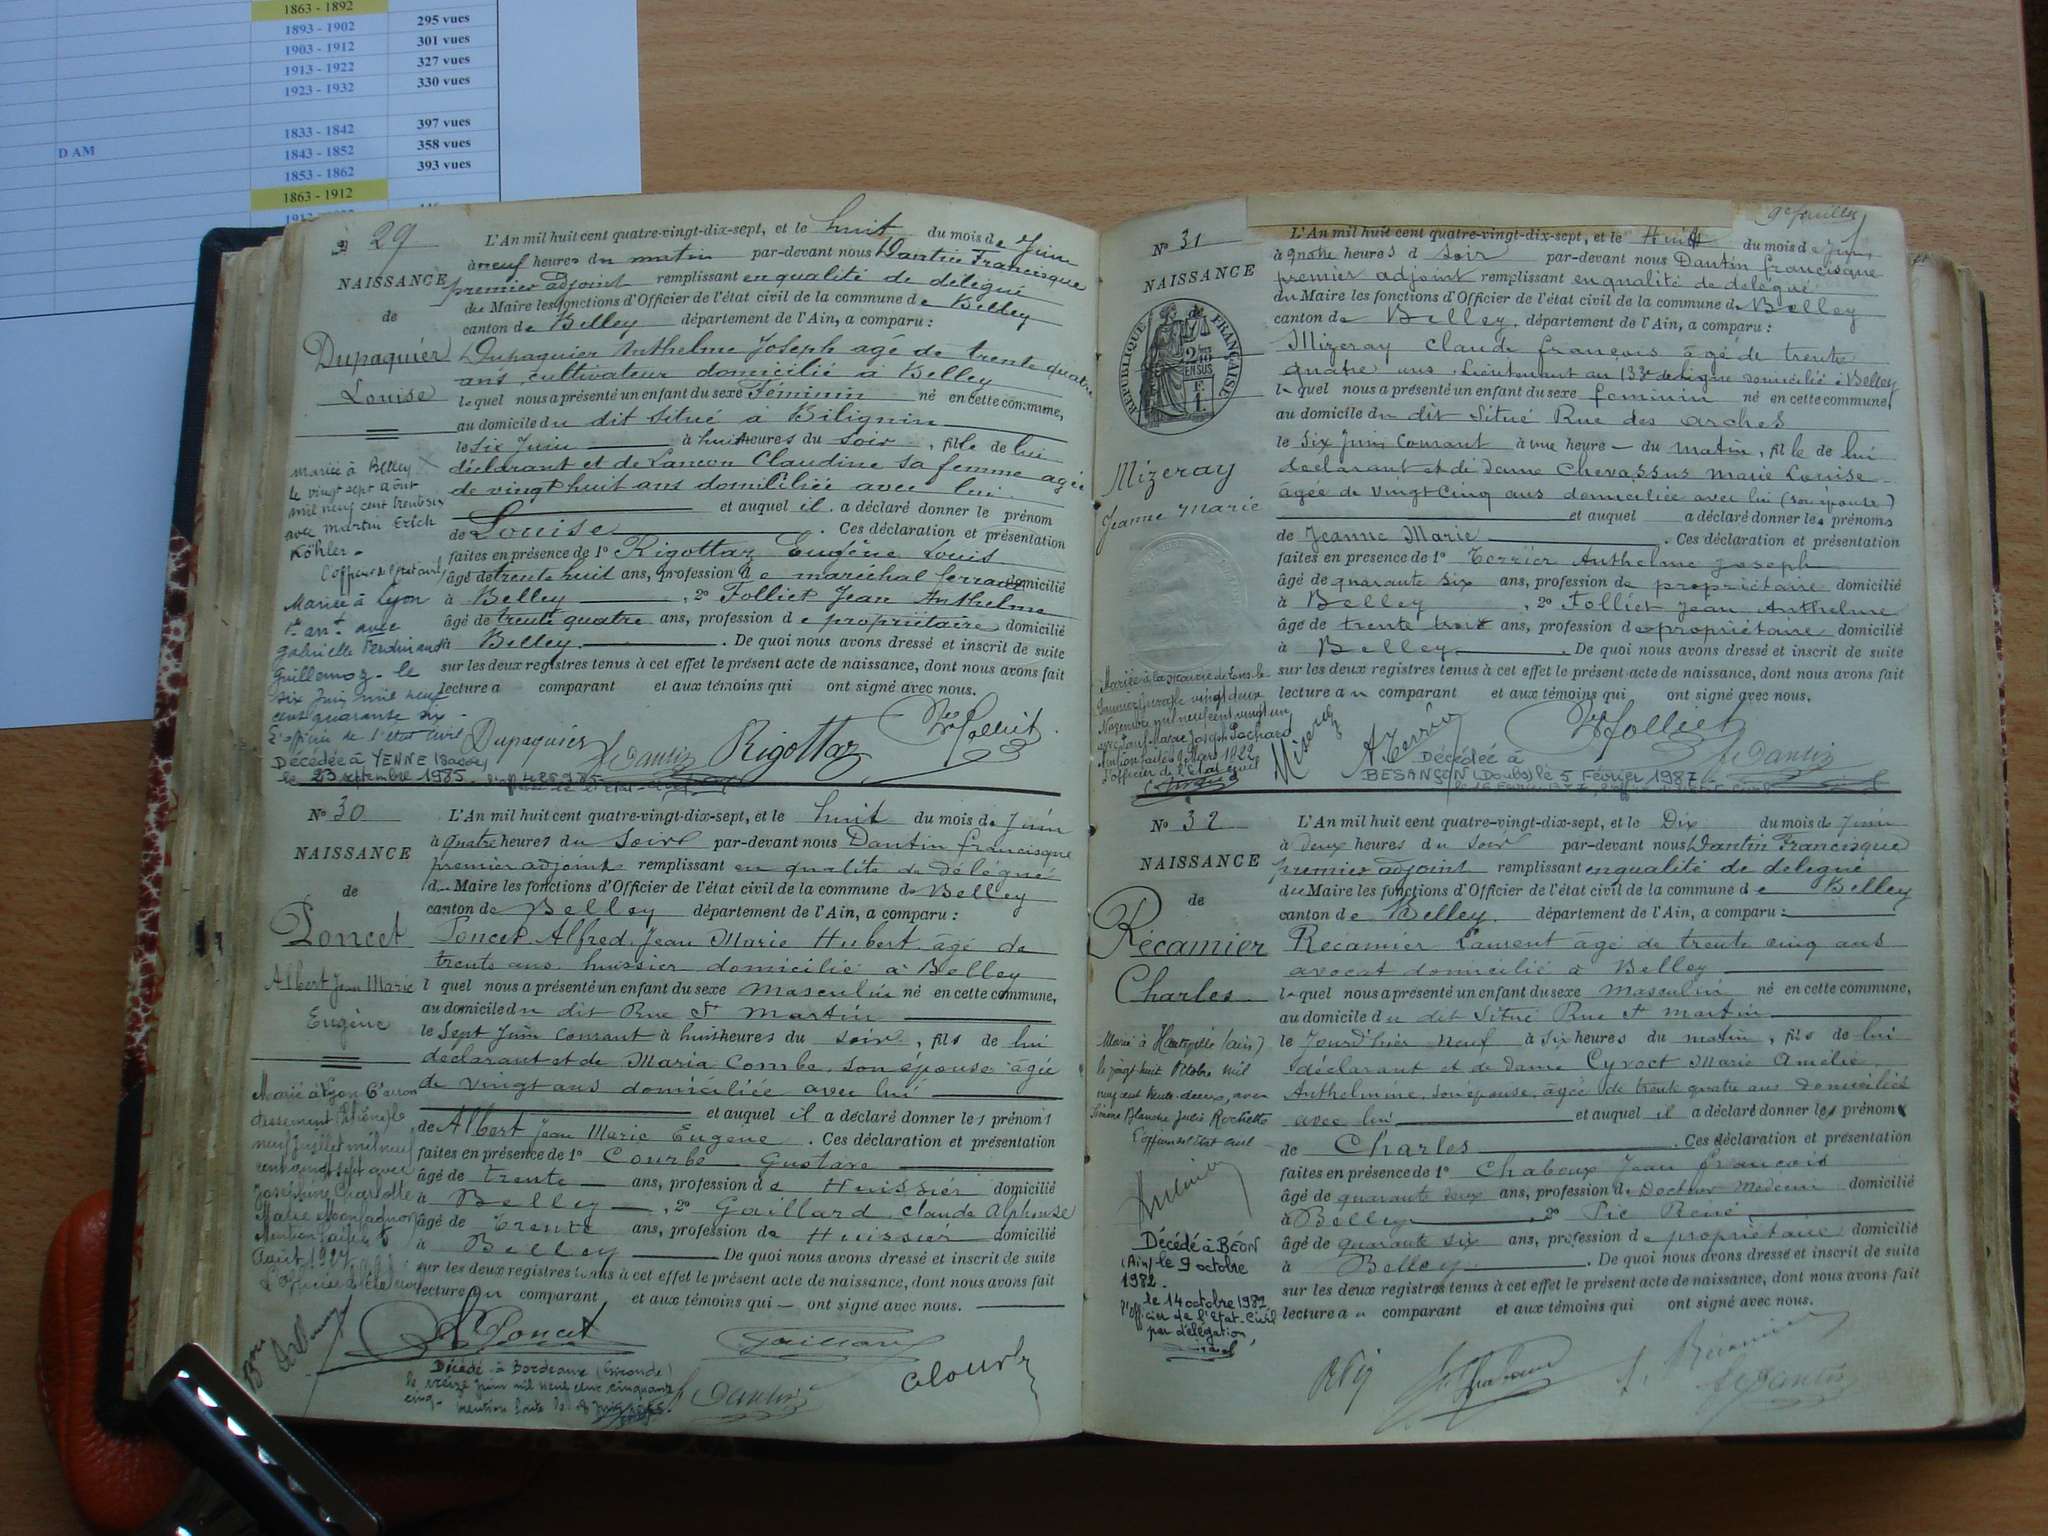 1863 - 1892
1893 - 1902 295 vues
1903 - 1912 301 vues
1913 - 1922 327 vues
1923 - 1932 330 vues
1833 - 1842 397 vues
D AM 1843 - 1852 358 vues
1853 - 1862 393 vues
1863 - 1912
29
NAISSANCE
de
Dupaquier
Louise
L'An mil huit cent quatre-vingt-dix-sept, et le huit du mois de Juin
à neuf heures du matin par-devant nous Dantin Francisque
premier adjoint remplissant en qualité de délégué
du Maire les fonctions d'Officier de l'état civil de la commune de Belley
canton de Belley département de l'Ain, a comparu :
Dupaquier Anthelme Joseph agé de trente quatre
ans, cultivateur domicilié à Belley
lequel nous a présenté un enfant du sexe Féminin né en cette commune,
au domicile du dit situé à Bilignin
le six Juin à huit heures du soir, fille de lui
déclarant et de Lancon Claudine sa femme agée
de vingt huit ans domiciliée avec lui
et auquel il a déclaré donner le prénom
de Louise. Ces déclaration et présentation
faites en présence de 1º Rigottaz Eugène Louis
âgé de trente huit ans, profession de maréchal ferrant domicilié
à Belley, 2º Folliet Jean Anthelme
âgé de trente quatre ans, profession de propriétaire domicilié
à Belley. De quoi nous avons dressé et inscrit de suite
sur les deux registres tenus à cet effet le présent acte de naissance, dont nous avons fait
lecture a comparant et aux témoins qui ont signé avec nous.
Mariée à Belley
le vingt sept août
mil neuf cent trente six
avec Martin Erich
Köhler.
L'officier de l'état civil,
Mariée à Lyon
1er arrt avec
Gabrielle Ferdinand
Guillemoz le
six Juin mil neuf
cent quarante six
L'officier de l'état civil
Décédée à YENNE (Savoie)
le 23 septembre 1985.
Dupaquier Dantin Rigottaz Folliet
Nº 30
NAISSANCE
de
Poncet
Albert Jean Marie
Eugène
L'An mil huit cent quatre-vingt-dix-sept, et le huit du mois de Juin
à quatre heures du soir par-devant nous Dantin francisque
premier adjoint remplissant en qualité de délégué
du Maire les fonctions d'Officier de l'état civil de la commune de Belley
canton de Belley département de l'Ain, a comparu :
Poncet Alfred Jean Marie Hubert âgé de
trente ans huissier domicilié à Belley
lequel nous a présenté un enfant du sexe masculin né en cette commune,
au domicile du dit Rue St Martin
le sept Juin courant à huit heures du soir, fils de lui
déclarant et de Maria Combe son épouse âgée
de vingt ans domiciliée avec lui
et auquel il a déclaré donner les prénoms
de Albert Jean Marie Eugène. Ces déclaration et présentation
faites en présence de 1º Courbe Gustave
âgé de trente ans, profession de Huissier domicilié
à Belley, 2º Gaillard Claude Alphonse
âgé de trente ans, profession de Huissier domicilié
à Belley De quoi nous avons dressé et inscrit de suite
sur les deux registres tenus à cet effet le présent acte de naissance, dont nous avons fait
lecture au comparant et aux témoins qui ont signé avec nous.
Marié à Lyon 6e arron
dissement le
neuf Juillet mil neuf
cent vingt sept avec
Joséphine Charlotte
Marie
Mention faite le
Août 1927
L'Officier d'état civil
Poncet Gaillard
Décédé à Bordeaux (Gironde)
le treize juin mil neuf cent cinquante
cinq. mention faite le
Dantin
9e feuillet
Nº 31
NAISSANCE
RÉPUBLIQUE FRANÇAISE
Mizeray
Jeanne Marie
L'An mil huit cent quatre-vingt-dix-sept, et le Huit du mois de Juin
à quatre heures du soir par-devant nous Dantin francisque
premier adjoint remplissant en qualité de délégué
du Maire les fonctions d'Officier de l'état civil de la commune de Belley
canton de Belley, département de l'Ain, a comparu :
Mizeray Claude François âgé de trente
quatre ans, Lieutenant au 133e de ligne domicilié à Belley
lequel nous a présenté un enfant du sexe féminin né en cette commune,
au domicile du dit situé Rue des arches
le Six Juin courant à une heure du matin, fille de lui
déclarant et de dame Chevassus Marie Louise
âgée de vingt cinq ans domiciliée avec lui (son épouse)
et auquel a déclaré donner les prénoms
de Jeanne Marie. Ces déclaration et présentation
faites en présence de 1º Terrier Anthelme Joseph
âgé de quarante six ans, profession de propriétaire domicilié
à Belley, 2º Folliet Jean Anthelme
âgé de trente trois ans, profession de propriétaire domicilié
à Belley. De quoi nous avons dressé et inscrit de suite
sur les deux registres tenus à cet effet le présent acte de naissance, dont nous avons fait
lecture au comparant et aux témoins qui ont signé avec nous.
Mariée à la mairie de Lons-le
Saunier Jura le vingt deux
Novembre mil neuf cent vingt un
avec Marie Joseph Pochard
Mention faite le Mars 1922
L'officier de l'état civil
Folliet
Dantin
Décédée à
BESANÇON (Doubs) le 5 Février 1987
Nº 32
NAISSANCE
de
Récamier
Charles
L'An mil huit cent quatre-vingt-dix-sept, et le Dix du mois de Juin
à deux heures du soir par-devant nous Dantin Francisque
premier adjoint remplissant en qualité de délégué
du Maire les fonctions d'Officier de l'état civil de la commune de Belley
canton de Belley département de l'Ain, a comparu :
Récamier Laurent âgé de trente cinq ans
avocat domicilié à Belley
lequel nous a présenté un enfant du sexe masculin né en cette commune,
au domicile du dit situé Rue St Martin
le Jour d'hier neuf à six heures du matin, fils de lui
déclarant et de Dame Cyvoct Marie Amélie
Anthelmine, son épouse, âgée de trente quatre ans domiciliée
avec lui et auquel il a déclaré donner le prénom
de Charles. Ces déclaration et présentation
faites en présence de 1º Chaboux Jean François
âgé de quarante deux ans, profession de Docteur Médecin domicilié
à Belley, 2º Pic René
âgé de quarante six ans, profession de propriétaire domicilié
à Belley. De quoi nous avons dressé et inscrit de suite
sur les deux registres tenus à cet effet le présent acte de naissance, dont nous avons fait
lecture au comparant et aux témoins qui ont signé avec nous.
Marié à Hauteville (ain)
le vingt huit Octobre mil
neuf cent trente-deux, avec
Simone Blanche Julie Rochette
L'officier de l'état civil
Décédé à BÉON
(Ain) le 9 octobre
1982.
le 14 octobre 1982
l'Officier de l'Etat-Civil
par délégation,
Récamier
Dantin